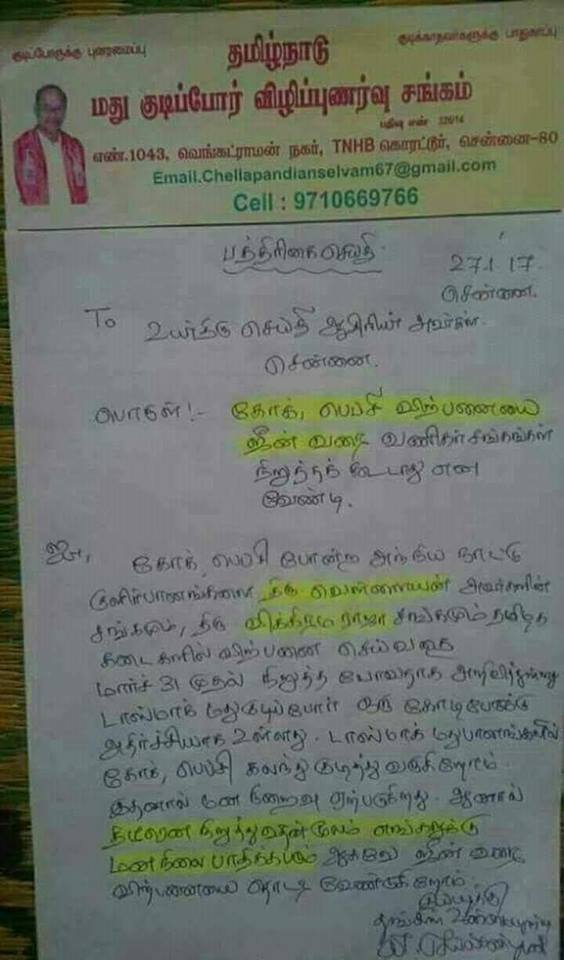 குடிப்போருக்கு புனரமைப்பு
குடிக்காதவர்களுக்கு பாதுகாப்பு
தமிழ்நாடு
மது குடிப்போர் விழிப்புணர்வு சங்கம்
பதிவு எண்
எண்.1043, வெங்கட்ராமன் நகர், TNHB கொரட்டூர், சென்னை-80
Email.Chellapandianselvam67@gmail.com
Cell : 9710669766
பத்திரிகைசெய்தி
27.1.17
சென்னை.
To
உயர்திரு செய்தி ஆசிரியர் அவர்கள்.
சென்னை.
பொருள்!- கோக், பெப்சி விற்பனையை
ஜீன் வரை வணிகர் சங்கங்கள்
நிறுத்தக் கூடாது என
வேண்டி.
ஐயா, கோக், பெப்சி போன்ற அந்நிய நாட்டு
குளிர்பானங்களை திரு வெள்ளையன் அவர்களின்
சங்கமும், திரு விக்கிரம ராஜா சங்கமும் தமிழக
கடைகளில் விற்பனை செய்வதை
மார்ச் 31 முதல் நிறுத்த போவதாக அறிவித்துள்ளது
டாஸ்மாக் மதுகுடிப்போர் ஒரு கோடிபேருக்கு
அதிர்ச்சியாக உள்ளது. டாஸ்மாக் மதுபானங்களில்
கோக், பெப்சி கலந்து குடித்து வருகிறோம்
இதனால் மன நிறைவு ஏற்படுகிறது. ஆனால்
திடீரென நிறுத்துவதன் மூலம் எங்களுக்கு
மனநிலை பாதிக்கப்படும் ஆகவே ஜீன் வரை
விற்பனையை நீட்டி வேண்டுகிறோம்
இப்படிக்கு
தங்கள் உண்மையுள்ள